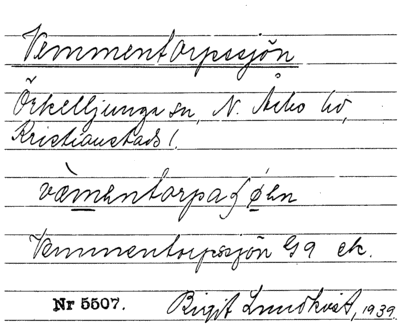 Vemmentorpssjön
Örkelljunga sn, N. Åsbo hd,
Kristianstads l.
Vemmentorpssjön G9 ek.
Nr 5507. Birgit Lundkvist, 1939.